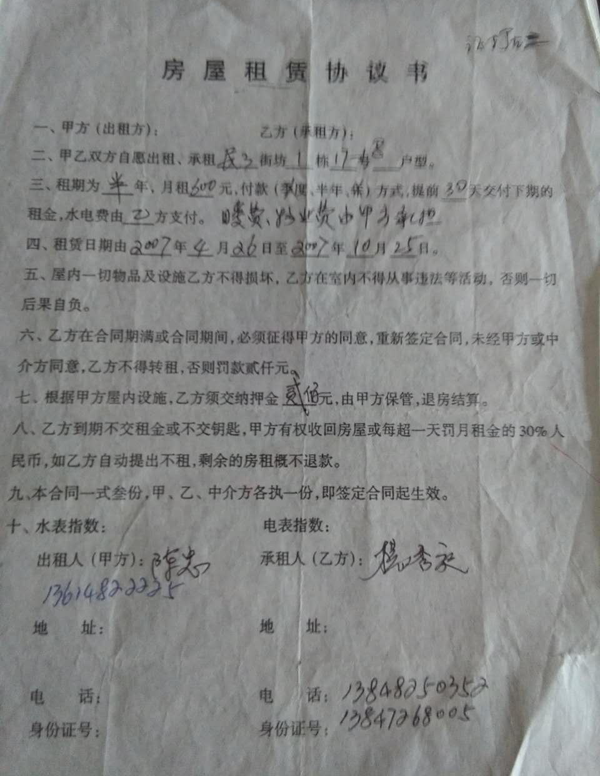 房屋租赁协议书
一、甲方（出租方）： 乙方（承租方）：
二、甲乙双方自愿出租、承租 街坊1栋17 户型。
三、租期为半年、月租600元，付款（季度、半年、年）方式，提前30天交付下期的
租金，水电费由乙方支付。暖费、物业费由甲方承担
四、租赁日期由2007年4月26日至2007年10月25日。
五、屋内一切物品及设施乙方不得损坏，乙方在室内不得从事违法等活动，否则一切
后果自负。
六、乙方在合同期满或合同期间，必须征得甲方的同意，重新签定合同，未经甲方或中
介方同意，乙方不得转租，否则罚款贰仟元。
七、根据甲方屋内设施，乙方须交纳押金贰佰元，由甲方保管，退房结算。
八、乙方到期不交租金或不交钥匙，甲方有权收回房屋或每超一天罚月租金的30%人
民币，如乙方自动提出不租，剩余的房租概不退款。
九、本合同一式叁份，甲、乙、中介方各执一份，即签定合同起生效。
十、水表指数： 电表指数：
出租人（甲方）：陈志 承租人（乙方）：杨秀
13614822225
地 址： 地 址：
电 话： 电 话：13848250352
身份证号： 身份证号：13847268005